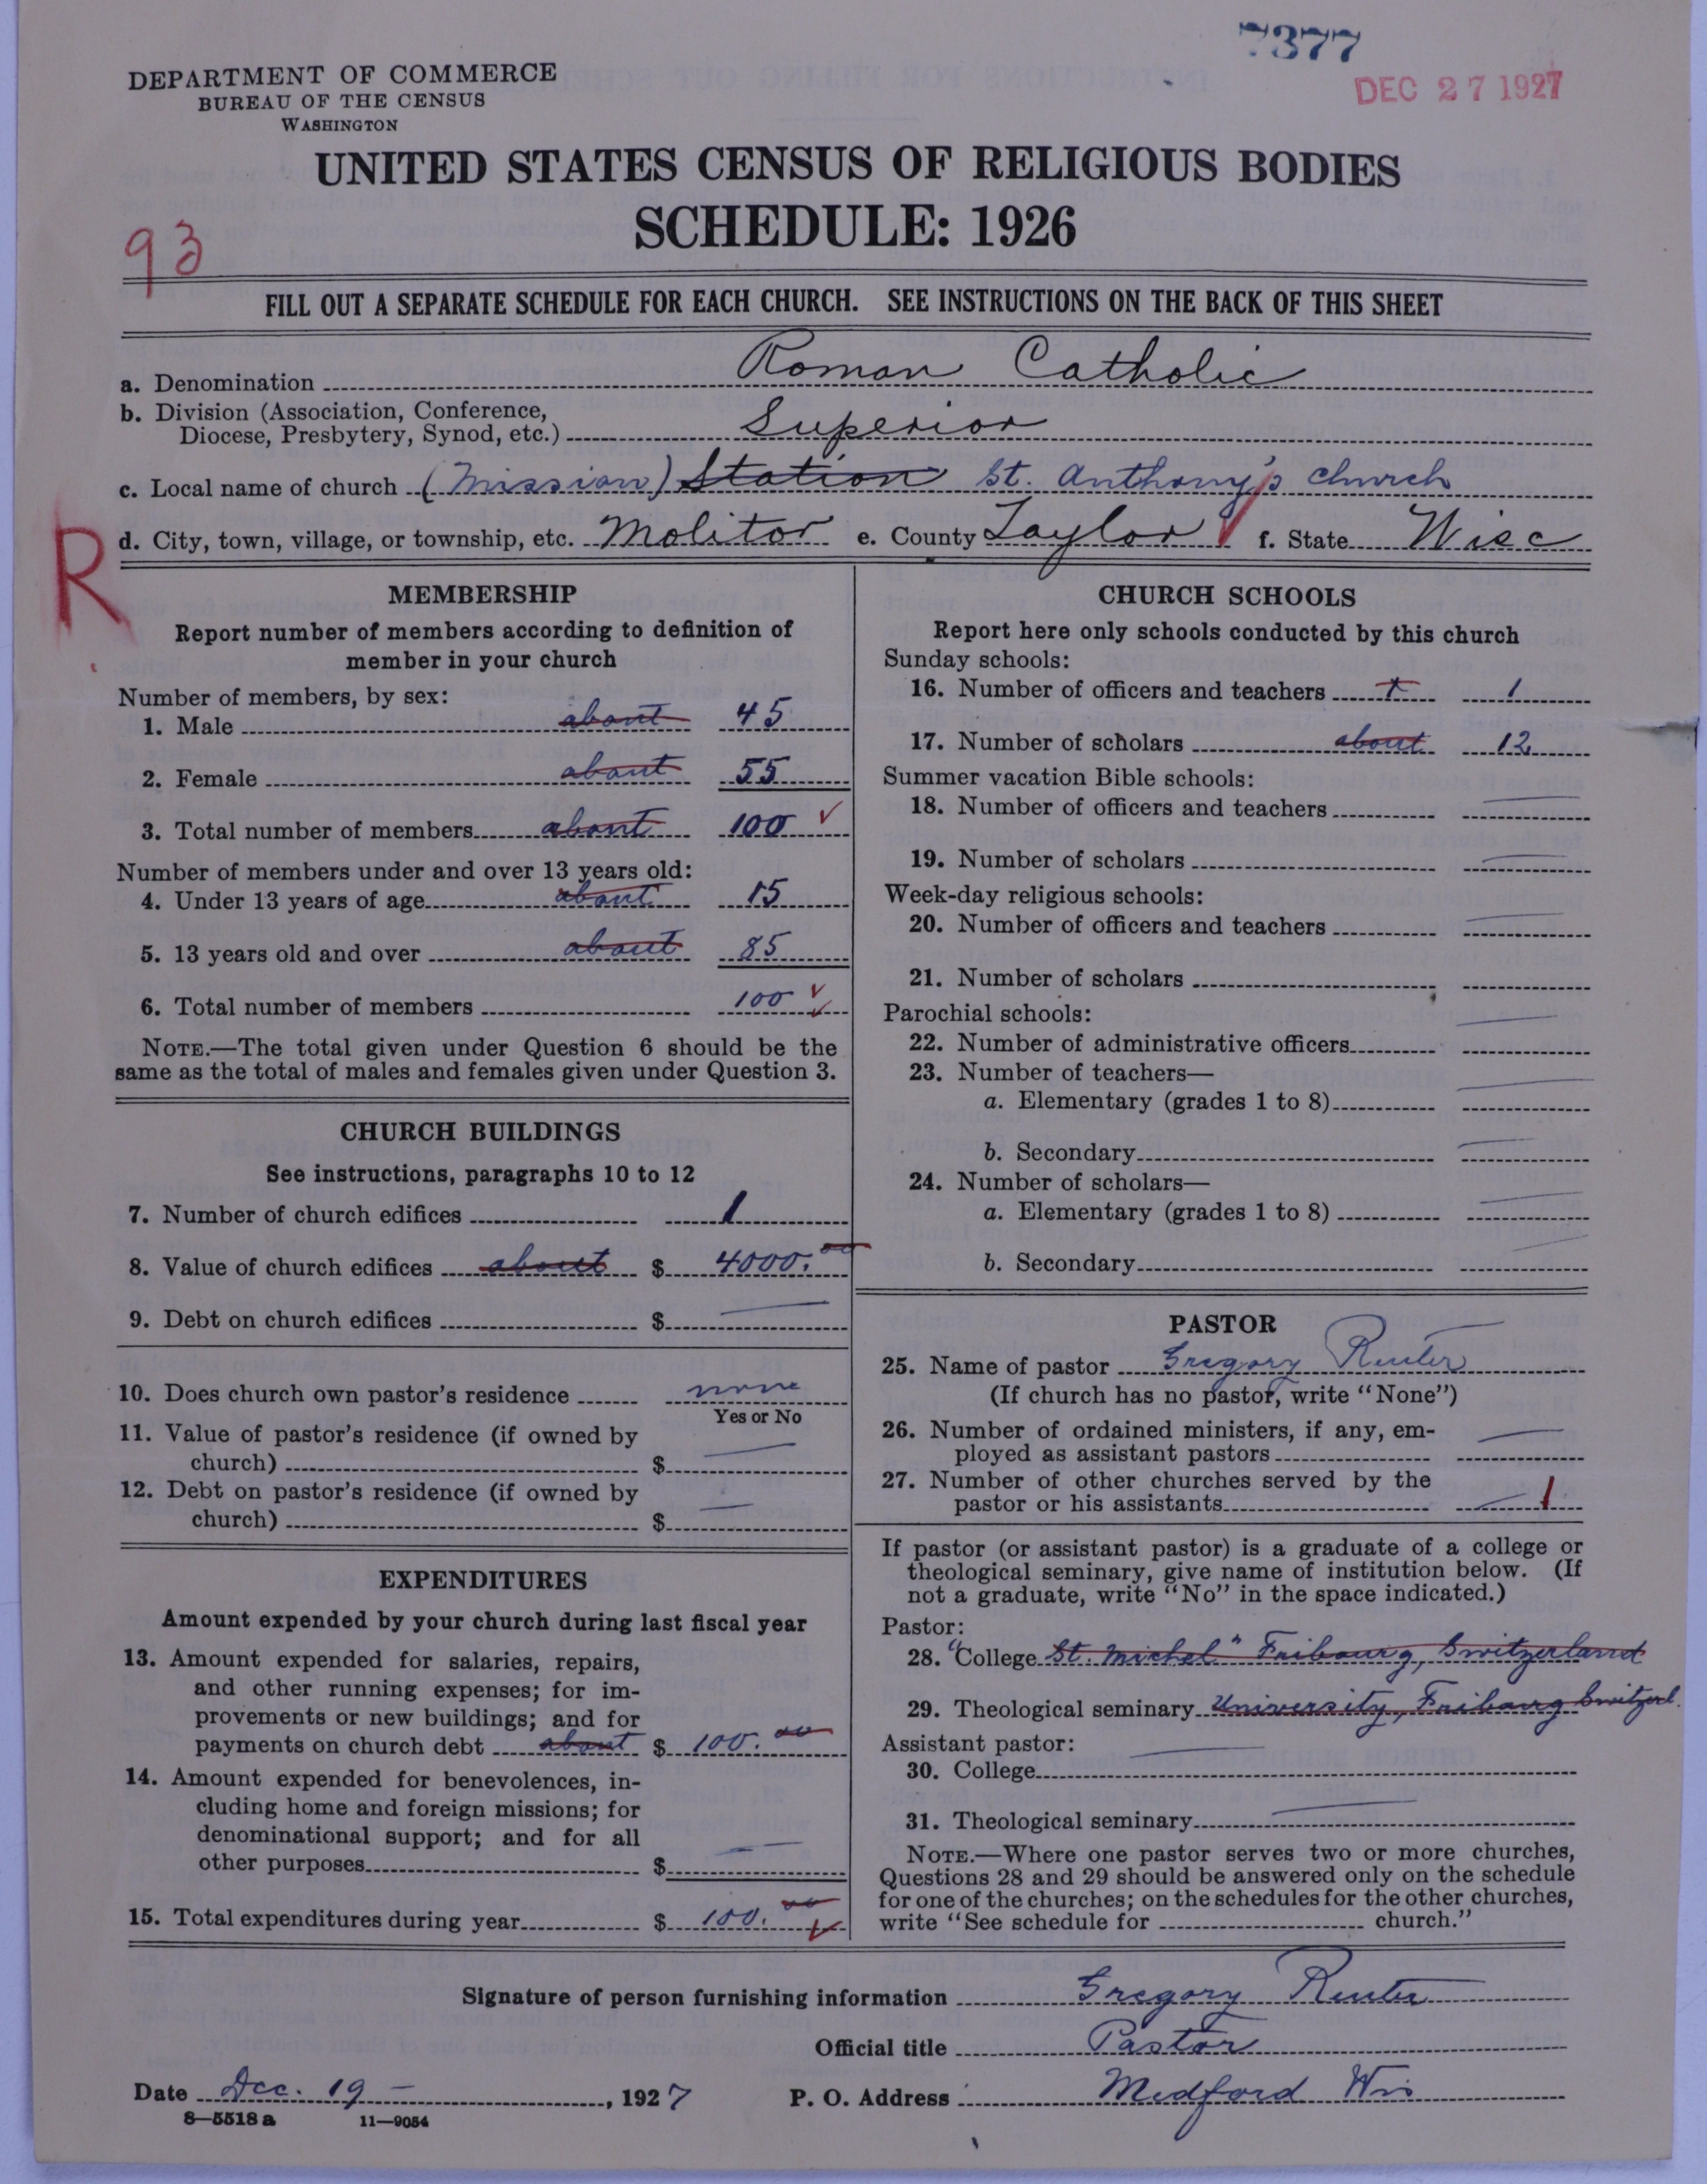 7377
DEC 27 1927
DEPARTMENT OF COMMERCE
BUREAU OF THE CENSUS
WASHINGTON
UNITED STATES CENSUS OF RELIGIOUS BODIES
SCHEDULE: 1926
93
FILL OUT A SEPARATE SCHEDULE FOR EACH CHURCH. SEE INSTRUCTIONS ON THE BACK OF THIS SHEET
a. Denomination Roman Catholic
b. Division (Association, Conference,
Diocese, Presbytery, Synod, etc.) Superior
c. Local name of church (Mission) Station St. Anthony's church
d. City, town, village, or township, etc. Molitor e. County Taylor f. State Wisc
R
MEMBERSHIP
Report number of members according to definition of
member in your church
Number of members, by sex:
1. Male about 45
2. Female about 55
3. Total number of members about 100
Number of members under and over 13 years old:
4. Under 13 years of age about 15
5. 13 years old and over about 85
6. Total number of members 100
NOTE.—The total given under Question 6 should be the
same as the total of males and females given under Question 3.
CHURCH BUILDINGS
See instructions, paragraphs 10 to 12
7. Number of church edifices 1
8. Value of church edifices about $ 4000.00
9. Debt on church edifices $
10. Does church own pastor's residence none
Yes or No
11. Value of pastor's residence (if owned by
church) $
12. Debt on pastor's residence (if owned by
church) $
EXPENDITURES
Amount expended by your church during last fiscal year
13. Amount expended for salaries, repairs,
and other running expenses; for im-
provements or new buildings; and for
payments on church debt about $ 100.00
14. Amount expended for benevolences, in-
cluding home and foreign missions; for
denominational support; and for all
other purposes $
15. Total expenditures during year $ 100.00
CHURCH SCHOOLS
Report here only schools conducted by this church
Sunday schools:
16. Number of officers and teachers 1 1
17. Number of scholars about 12
Summer vacation Bible schools:
18. Number of officers and teachers
19. Number of scholars
Week-day religious schools:
20. Number of officers and teachers
21. Number of scholars
Parochial schools:
22. Number of administrative officers
23. Number of teachers—
a. Elementary (grades 1 to 8)
b. Secondary
24. Number of scholars—
a. Elementary (grades 1 to 8)
b. Secondary
PASTOR
25. Name of pastor Gregory Reuter
(If church has no pastor, write "None")
26. Number of ordained ministers, if any, em-
ployed as assistant pastors
27. Number of other churches served by the
pastor or his assistants 1
If pastor (or assistant pastor) is a graduate of a college or
theological seminary, give name of institution below. (If
not a graduate, write "No" in the space indicated.)
Pastor:
28. "College St. Michel" Fribourg, Switzerland
29. Theological seminary University, Fribourg Switzerl.
Assistant pastor:
30. College
31. Theological seminary
NOTE.—Where one pastor serves two or more churches,
Questions 28 and 29 should be answered only on the schedule
for one of the churches; on the schedules for the other churches,
write "See schedule for church."
Signature of person furnishing information Gregory Reuter
Official title Pastor
Date Dec. 19 –, 1927 P. O. Address Medford Wis
8—5518 a 11—9054